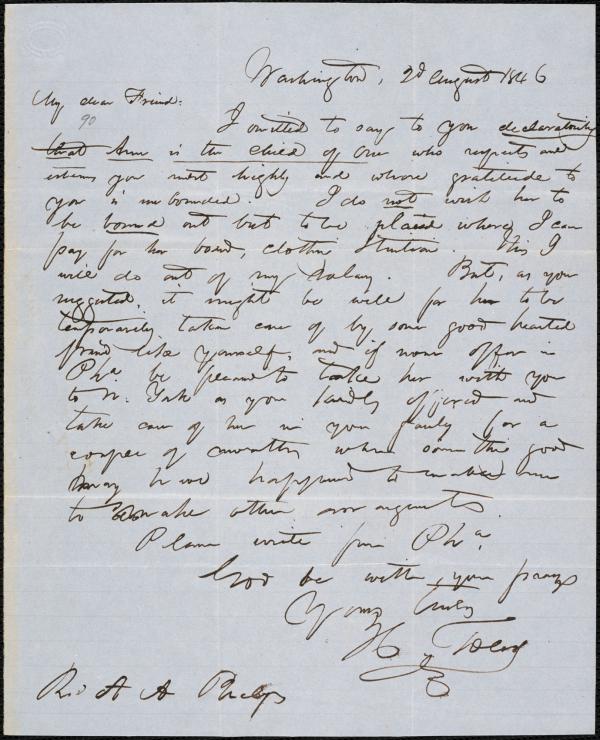 Washington, 2d August 1846
My dear Friend:
90
I omitted to say to you declaratively
that Ann is the child of one who respects and
esteems you most highly and whose gratitude to
you is unbounded. I do not wish her to
be bound out but to be placed where I can
pay for her board, clothes & tuition. This I
will do out of my salary. But, as you
suggested, it might be well for her to be
temporarily taken care of by some good hearted
friend like yourself, and if none offer in
Pha be pleased to take her with you
to N. York as you kindly offered and
take care of her in your family for a
couple of months when something good
may have happened to enable me
to make other arrangements.
Please write from Pha.
God be with you
Yours truly
Rev A A Phelps